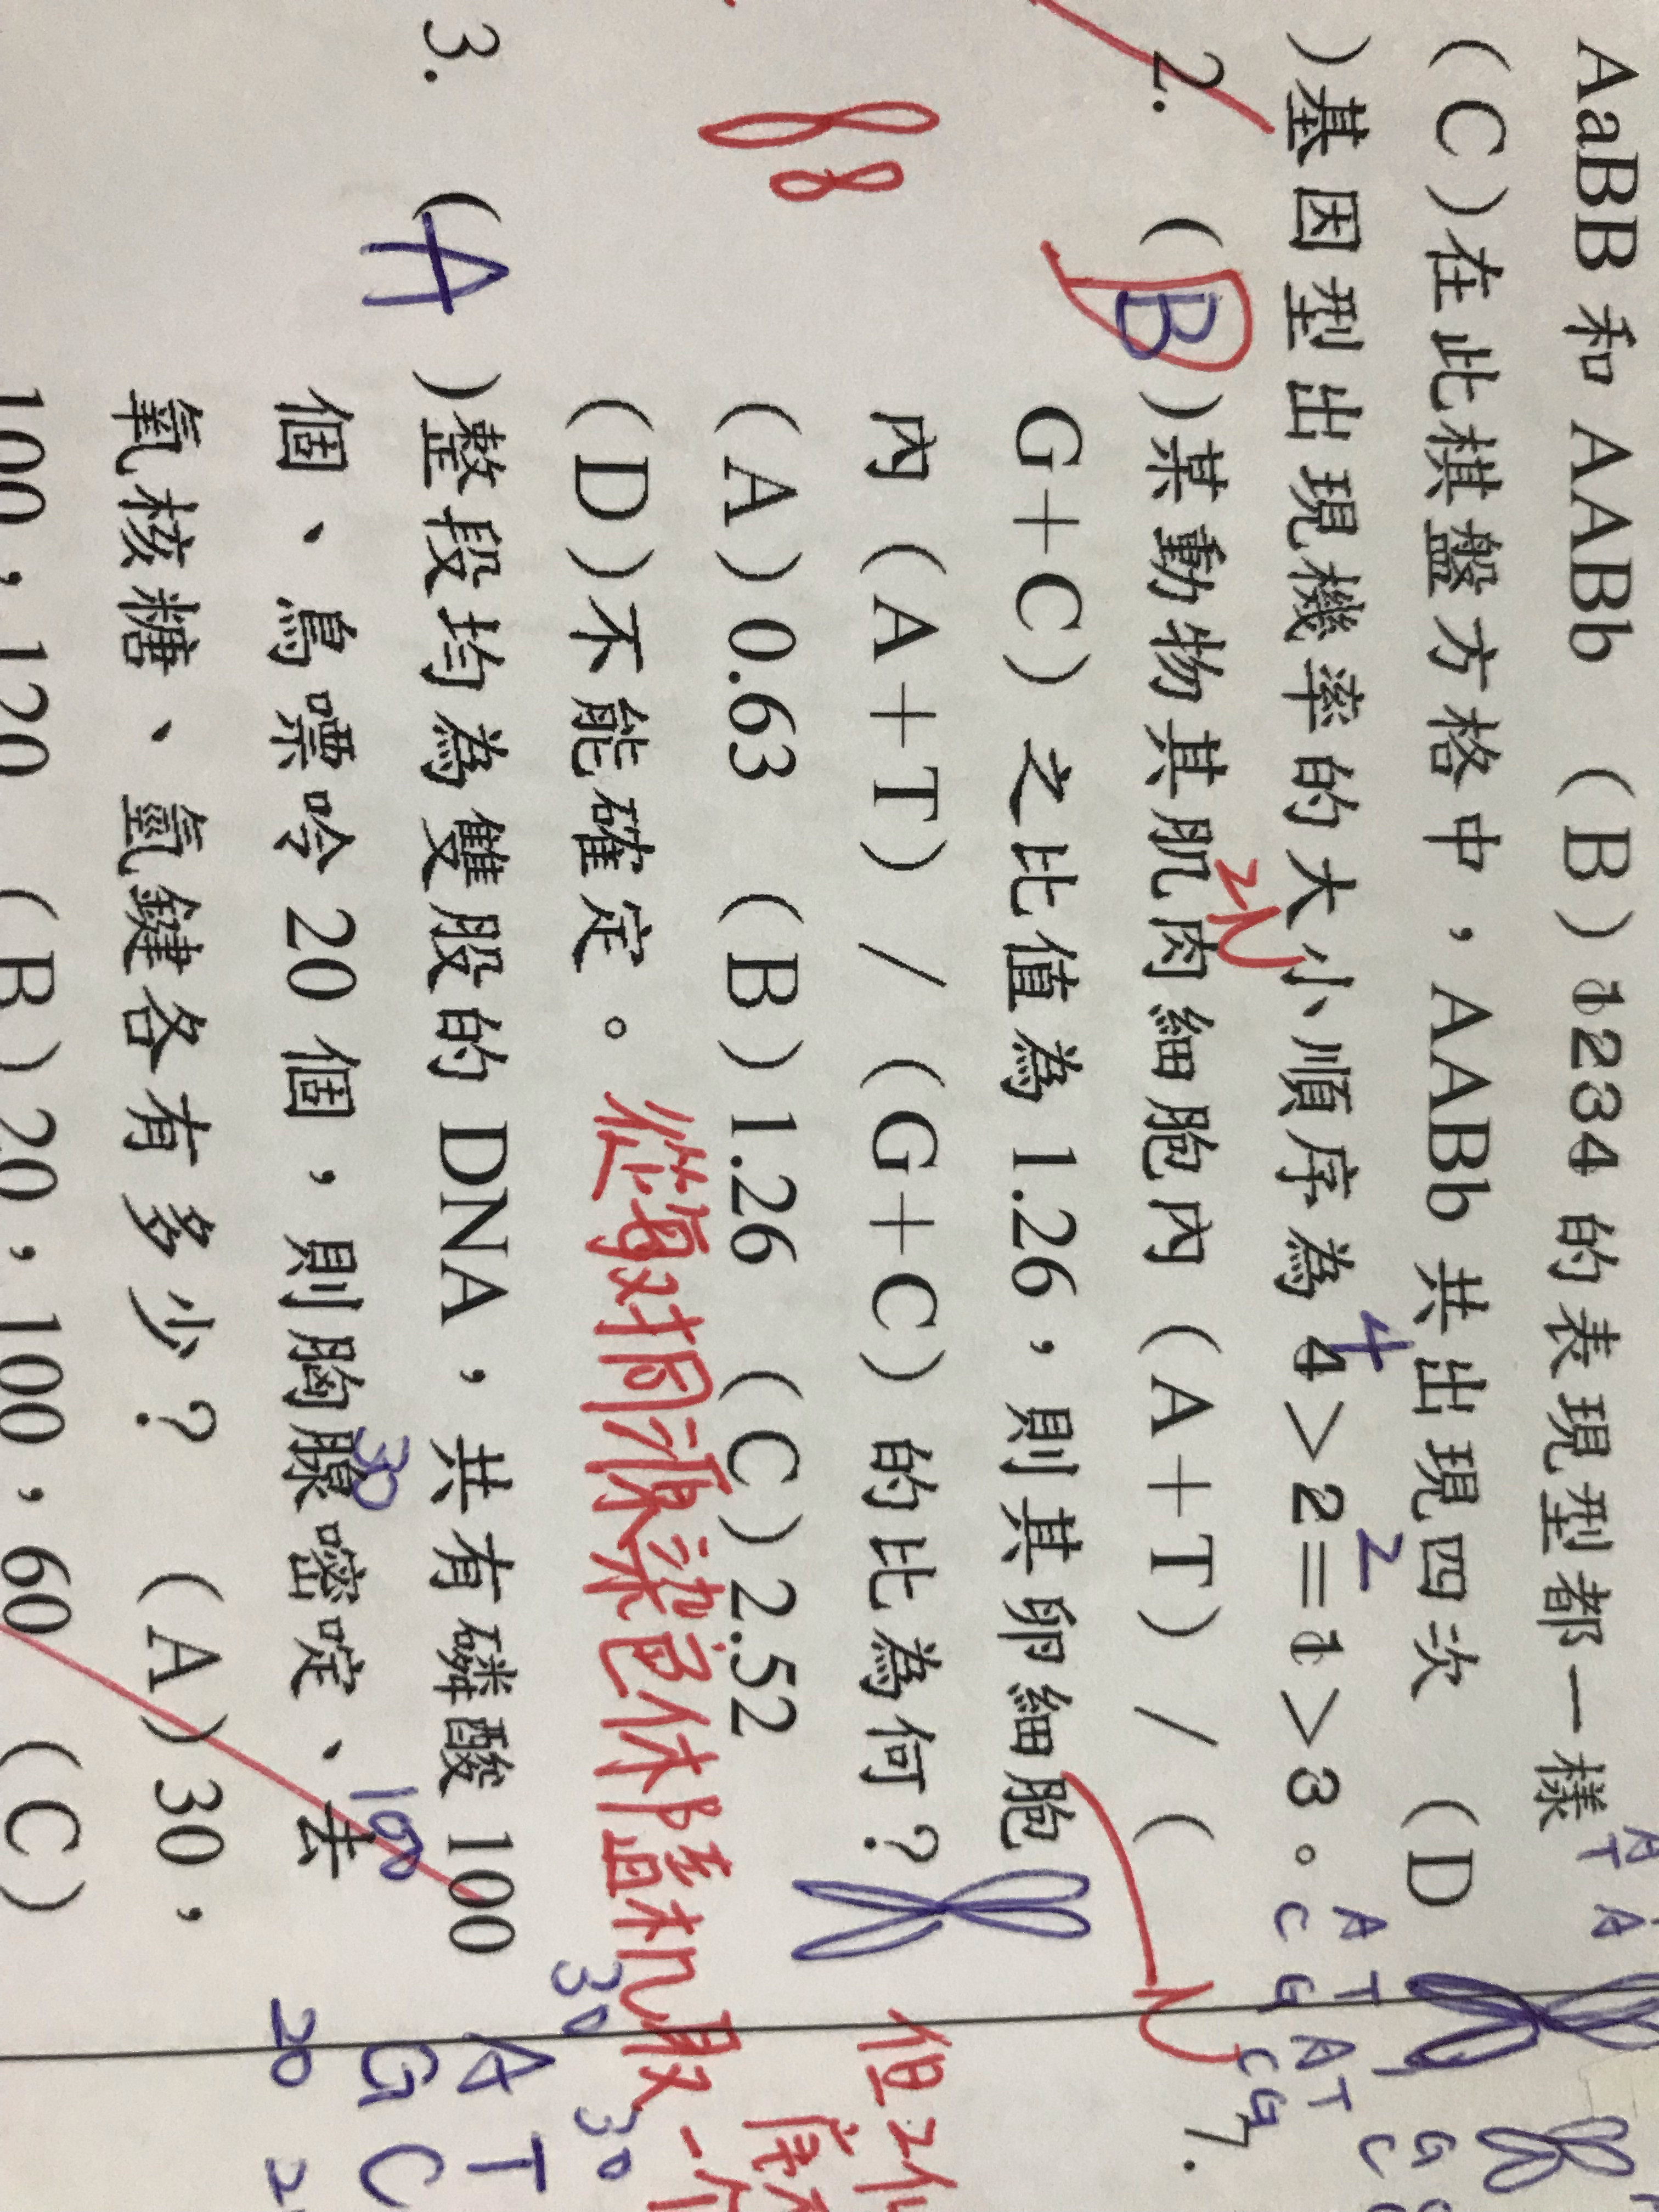 AaBB 和 AABb （B）1234 的表現型都一樣
（C）在此棋盤方格中，AABb 共出現四次 （D
）基因型出現機率的大小順序為 4＞2＝1＞3。
4 2
2. （B）某動物其肌肉細胞內（A＋T）／（
2N
G＋C）之比值為 1.26，則其卵細胞
N
內（A＋T）／（G＋C）的比為何？
（A）0.63 （B）1.26 （C）2.52
（D）不能確定。
從每对同源染色体隨机取一个
但2个
3. （A）整段均為雙股的 DNA，共有磷酸 100
個、鳥嘌呤 20 個，則胸腺嘧啶、去
30 100
氧核糖、氫鍵各有多少？ （A）30，
100，120 （B）20，100，60 （C）
30 30
A T
G C
20 2
A T A
A T A T
C G C G
G C
7.